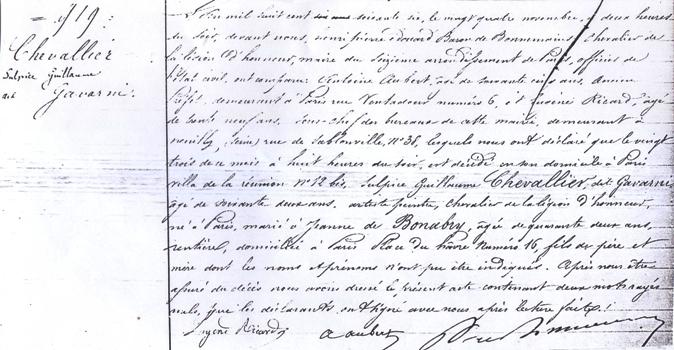 719
Chevallier
Sulpice Guillaume
dit Gavarni
L'an mil huit cent soixante six, le vingt quatre novembre, à deux heures
du soir, devant nous, Henri pierre édouard Baron de Bonnemains, Chevalier de
la Légion d'honneur, maire du Seizième arrondissement de Paris, officier de
l'état civil, ont comparu: Antoine Aubert, âgé de soixante cinq ans, Ancien
Préfet, demeurant à Paris rue Ventadour numéro 6, et Eugène Ricard, âgé
de trente neuf ans, sous-chef des bureaux de cette mairie, demeurant à
neuilly, (Seine) rue de Sablonville, N° 38, lesquels nous ont déclaré que le vingt
trois de ce mois à huit heures du soir, est décédé en son domicile à Paris
villa de la réunion N° 12 bis, Sulpice Guillaume Chevallier, dit Gavarni
âgé de soixante deux ans, artiste peintre, Chevalier de la légion d'honneur,
né à Paris, marié à Jeanne de Bonabry, âgée de quarante deux ans,
rentière, domiciliée à Paris Place du havre Numéro 16, fils de père et
mère dont les noms et prénoms n'ont pu être indiqués. Après nous être
assuré du décès nous avons dressé le présent acte contenant deux mots rayés
nuls, que les déclarants ont signé avec nous après lecture faite!
Eugène Ricard
A Aubert